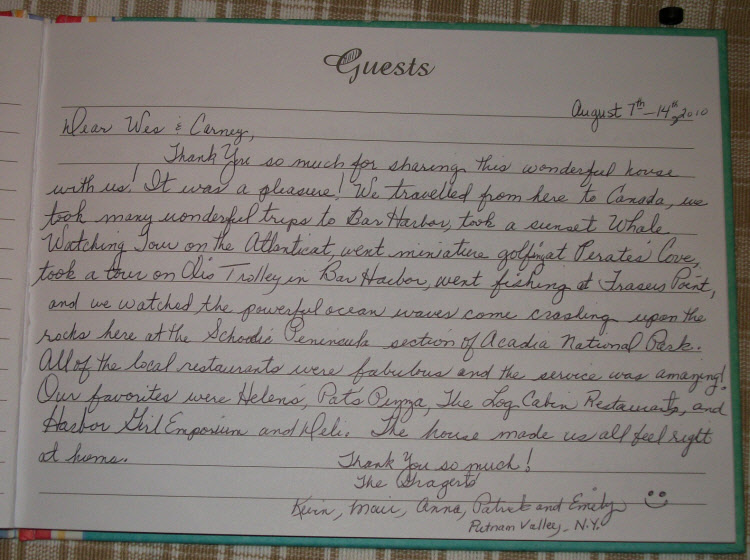 Guests
August 7th - 14th, 2010
Dear Wes & Carney,
Thank You so much for sharing this wonderful house
with us! It was a pleasure! We travelled from here to Canada, we
took many wonderful trips to Bar Harbor, took a sunset Whale
Watching Tour on the Atlanticat, went miniature golfing at Pirates Cove,
took a tour on Olis Trolley in Bar Harbor, went fishing at Frasers Point,
and we watched the powerful ocean waves come crashing upon the
rocks here at the Schoodic Peninsula section of Acadia National Park.
All of the local restaurants were fabulous and the service was amazing!
Our favorites were Helens, Pat's Pizza, The Log Cabin Restaurants, and
Harbor Girl Emporium and Deli. The house made us all feel right
at home.
Thank You so much!
The
Kevin, Anna, Patrick and Emily
Putnam Valley, N.Y.